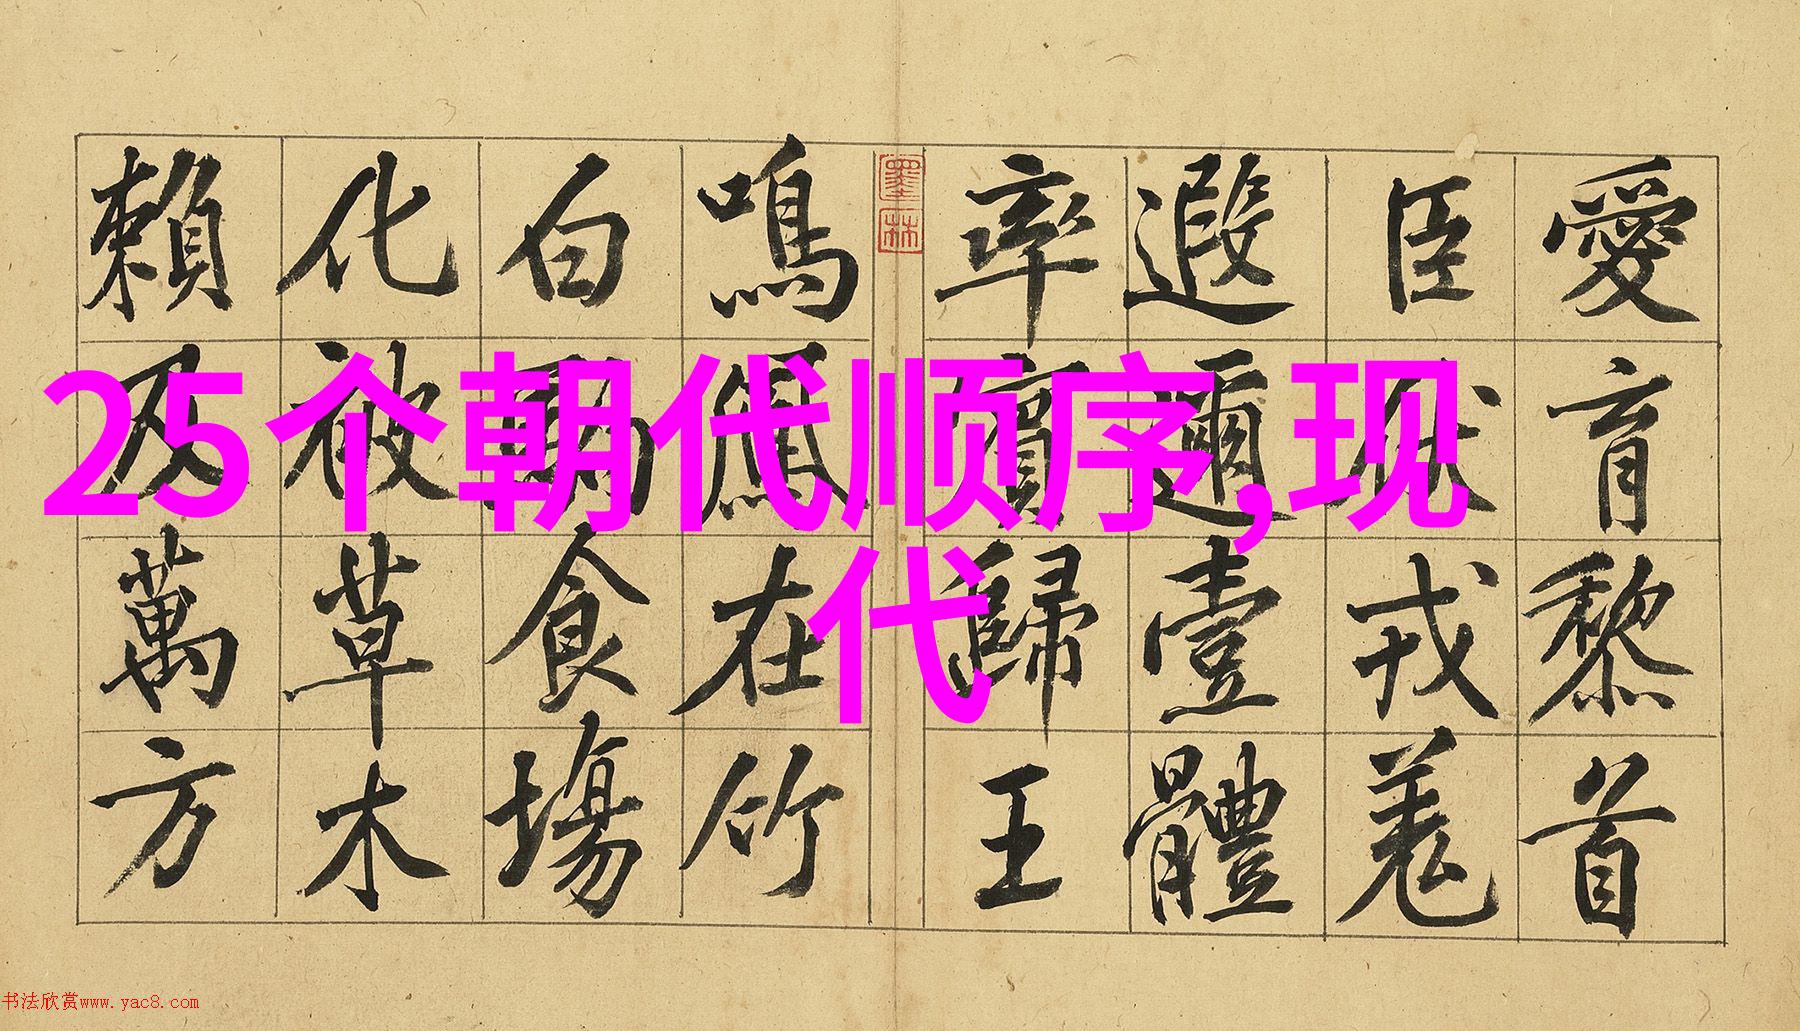 25个朝代顺序,现
代
愛育黎首
臣伏戎羌
遐邇壹體
率賓歸王
墨林
鳴鳳在竹
白駒食場
化被草木
賴及萬方
书法欣赏www.yac8.com